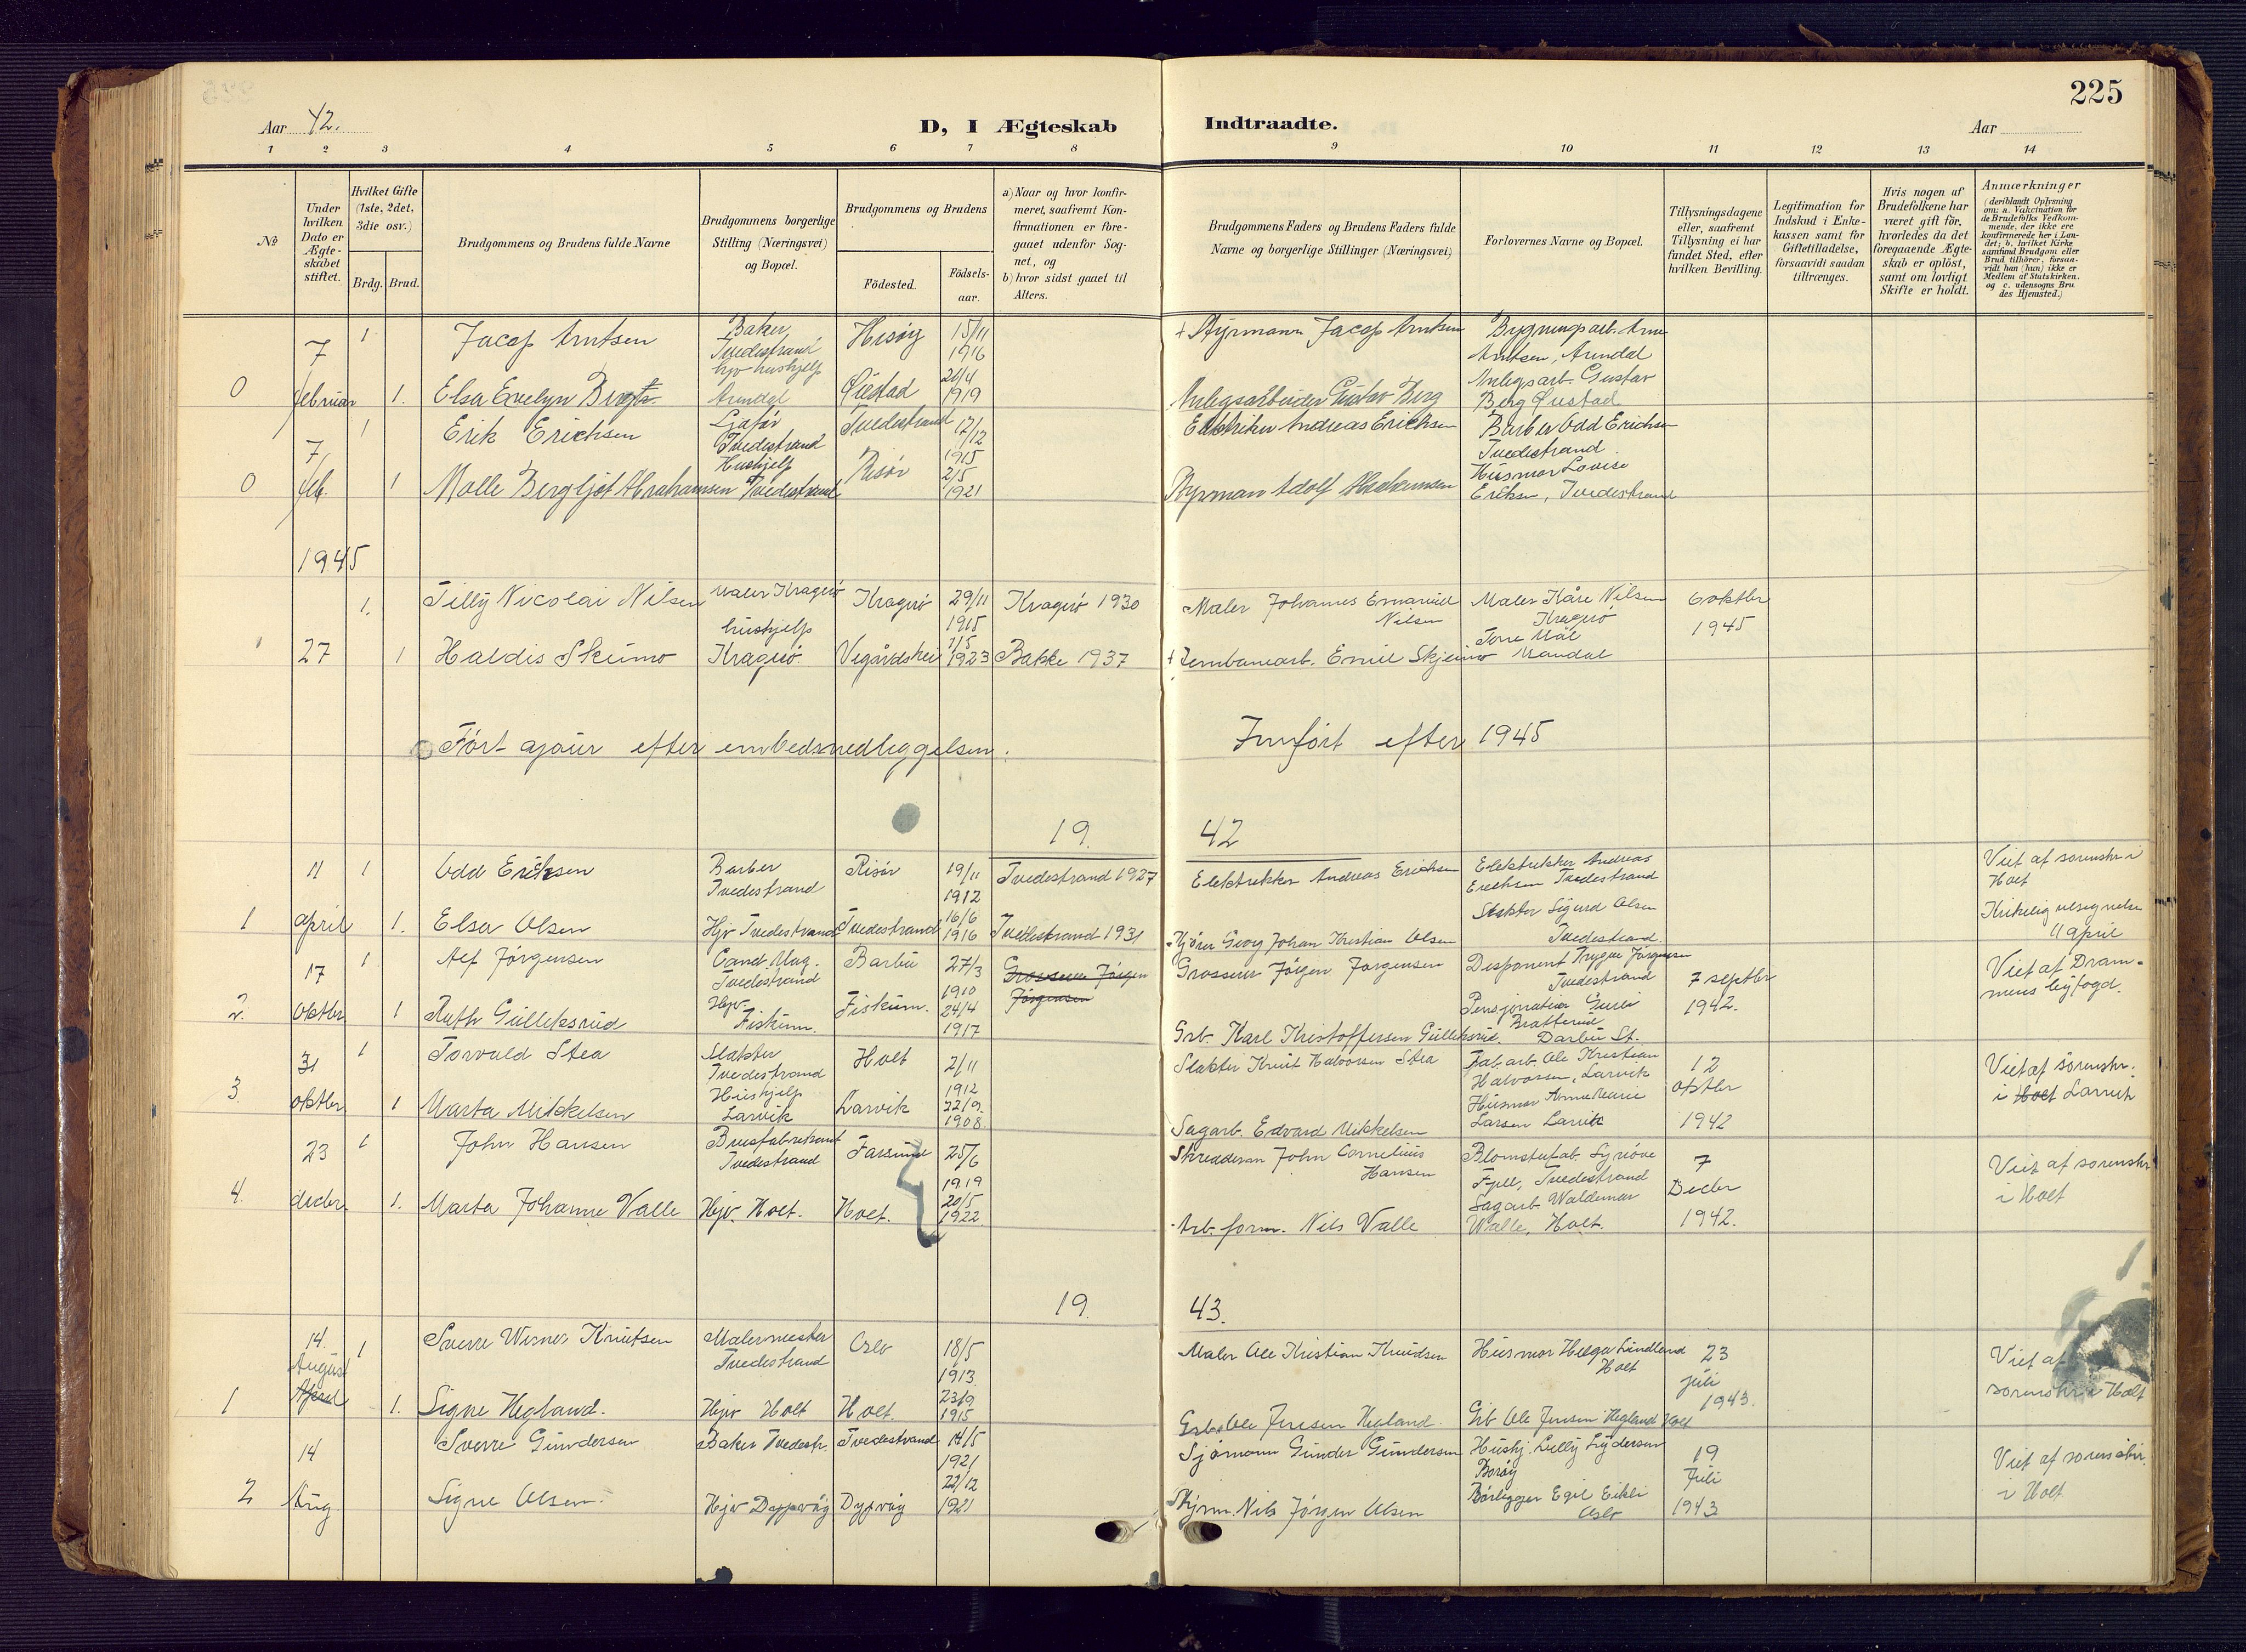 225
Aar 42.
D, I Ægteskab Indtraadte.
Aar
1 2 3 4 5 6 7 8 9 10 11 12 13 14
№
Under hvilken Dato er Ægteskabet stiftet.
Hvilket Gifte (1ste, 2det, 3die osv.)
Brdg. Brud.
Brudgommens og Brudens fulde Navne
Brudgommens borgerlige Stilling (Næringsvei) og Bopæl.
Brudgommens og Brudens
Födested.
Födsels-aar.
a) Naar og hvor konfirmeret, saafremt Konfirmationen er foregaaet udenfor Sognet, og
b) hvor sidst gaaet til Alters.
Brudgommens Faders og Brudens Faders fulde Navne og borgerlige Stillinger (Næringsvei)
Forlovernes Navne og Bopæl.
Tillysningsdagene eller, saafremt Tillysning ei har fundet Sted, efter hvilken Bevilling.
Legitimation for Indskud i Enkekassen samt for Giftetilladelse, forsaavidt saadan tiltrænges.
Hvis nogen af Brudefolkene har været gift för, hvorledes da det foregaaende Ægteskab er oplöst, samt om lovligt Skifte er holdt.
Anmærkninger (deriblandt Oplysning om: a. Vakcination for de Brudefolks Vedkommende, der ikke ere konfirmerede her i Landet; b. hvilket Kirkesamfund Brudgom eller Brud tilhörer, forsaavidt han (hun) ikke er Medlem af Statskirken, og c. udensogns Brudes Hjemsted.)
7 1 Jacop Arntsen Baker, Tvedestrand Hisøy 15/11 1916 + Styrmann Jacop Arntsen Bygningsarb. Arne Arntsen, Arendal
0 februar 1. Elsa Evelyn Berg hjv hushjelp Arendal Øiestad 1919 Anlegsarbeider Gustav Berg Anlegsarb. Gustav Berg Øiestad
7 1 Erik Erichsen Tvedestrand Tvedestrand 17/12 1915 Andreas Erichsen Barber Odd Erichsen Tvedestrand
0 feb. 1 Malle Bergljot Abrahamsen Hushjelp Tvedestrand Risør 2/5 1921 Styrman Adolf Abrahamsen Husmor Lovise Eriksen, Tvedestrand
1945
1. Tilly Nicolai Nilsen Maler Kragerø Kragerø 29/11 1915 Kragerø 1930 Maler Johannes Emanuel Nilsen Maler Kåre Nilsen Kragerø 6 oktbr 1945
27 1 Haldis Skeimo hushjelp Kragerø. Vegårdshei 1/5 1923 Bakke 1937 + Jernbanearb. Emil Skjeimo Mandal
Ført ajour efter embedsnedleggelsen.
Innført efter 1945
19. 42
11 1 Odd Eriksen Barber Tvedestrand Risør 19/11 1912 Tvedestrand 1927 Elektrikker Andreas Erichsen Elektrikker Andreas Erichsen Tvedestrand Viet af sorenskr i Holt
1 april 1. Elsa Olsen Hjv Tvedestrand Tvedestrand 16/6 1916 Tvedestrand 1931 Georg Johan Kristian Olsen Slakter Sigurd Olsen Tvedestrand. Kirkelig velsignelse 11 april
17 1 Alf Jørgensen Cand. Mag. Tvedestrand Barbu 27/3 1910 Grosserer Jørgen Jørgensen Grosserer Jörgen Jørgensen Disponent Trygve Jörgensen Tvedestrand 7 septbr 1942. Viet af Drammens byfogd.
2. Oktbr 1 Ruth Gulleksrud Hjv. Fiskum. Fiskum. 24/4 1917 Grb. Karl Kristoffersen Gulleksrud. Darbu St.
31 1 Torvald Stea Slakter Tvedestrand Holt 2/11 1912 Slakter Knut Halvorsen Stea Fab. arb. Ole Kristian Halvorsen, Larvik 12 oktbr 1942 Viet af sörenskr. i Holt Larvik
3. oktbr. 1 Marta Mikkelsen Hushjelp Larvik Larvik 22/9. 1908. Sagarb. Edvard Mikkelsen Husmor Anne Marie Larsen Larvik
23 1 John Hansen Tvedestrand Farsund 25/6 1919 John Cornelius Hansen Fjell, Tvedestrand 7 Decbr 1942. Viet af sorenskr i Holt
4. decbr. 1. Marta Johanne Valle Hjv. Holt. Holt. 20/5 1922 Arb. form. Nils Valle Sagarb. Waldemar Walle, Holt.
19. 43.
14. 1 Sverre Werner Knutsen Malermester Tvedestrand Oslo 18/5 1913. Maler Ole Kristian Knudsen Husmor Helga Lindland Holt 23 juli 1943. Viet af sorenskr i Holt
1 August April 1. Signe Hegland. Hjv Holt Holt. 23/9 1915 Grb. Ole Jensen Hegland. Grb Ole Jensen Hegland Holt
14 Sverre Gundersen Baker Tvedestr. Tvedestrand 14/5 1921 Sjömann Gunder Gundersen Hushj. Lully Lydersen Borøy 19 Juli 1943 Viet af sorenskr. i Holt
2 Aug. Signe Olsen. Hjv Dypvåg Dypvåg 22/12 1921 Styrm. Nils Jörgen Olsen Egil Eikli Oslo